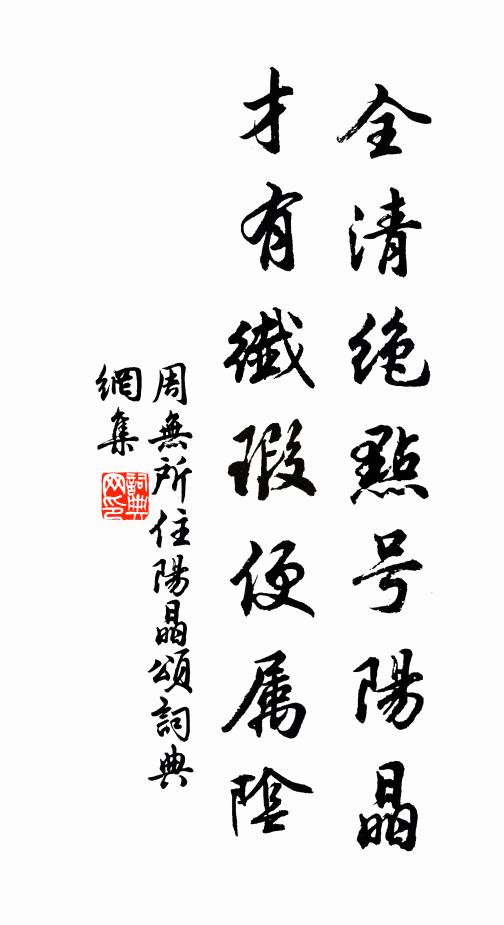 全清绝點号陽晶
才有纖瑕便属陰
周無所住陽晶頌詞典
網集
詞典
网印